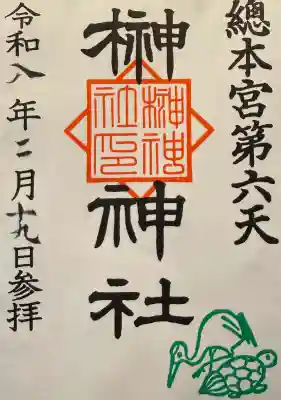 總本宮第六天
榊神社
榊神
社印
令和八年二月十九日参拝